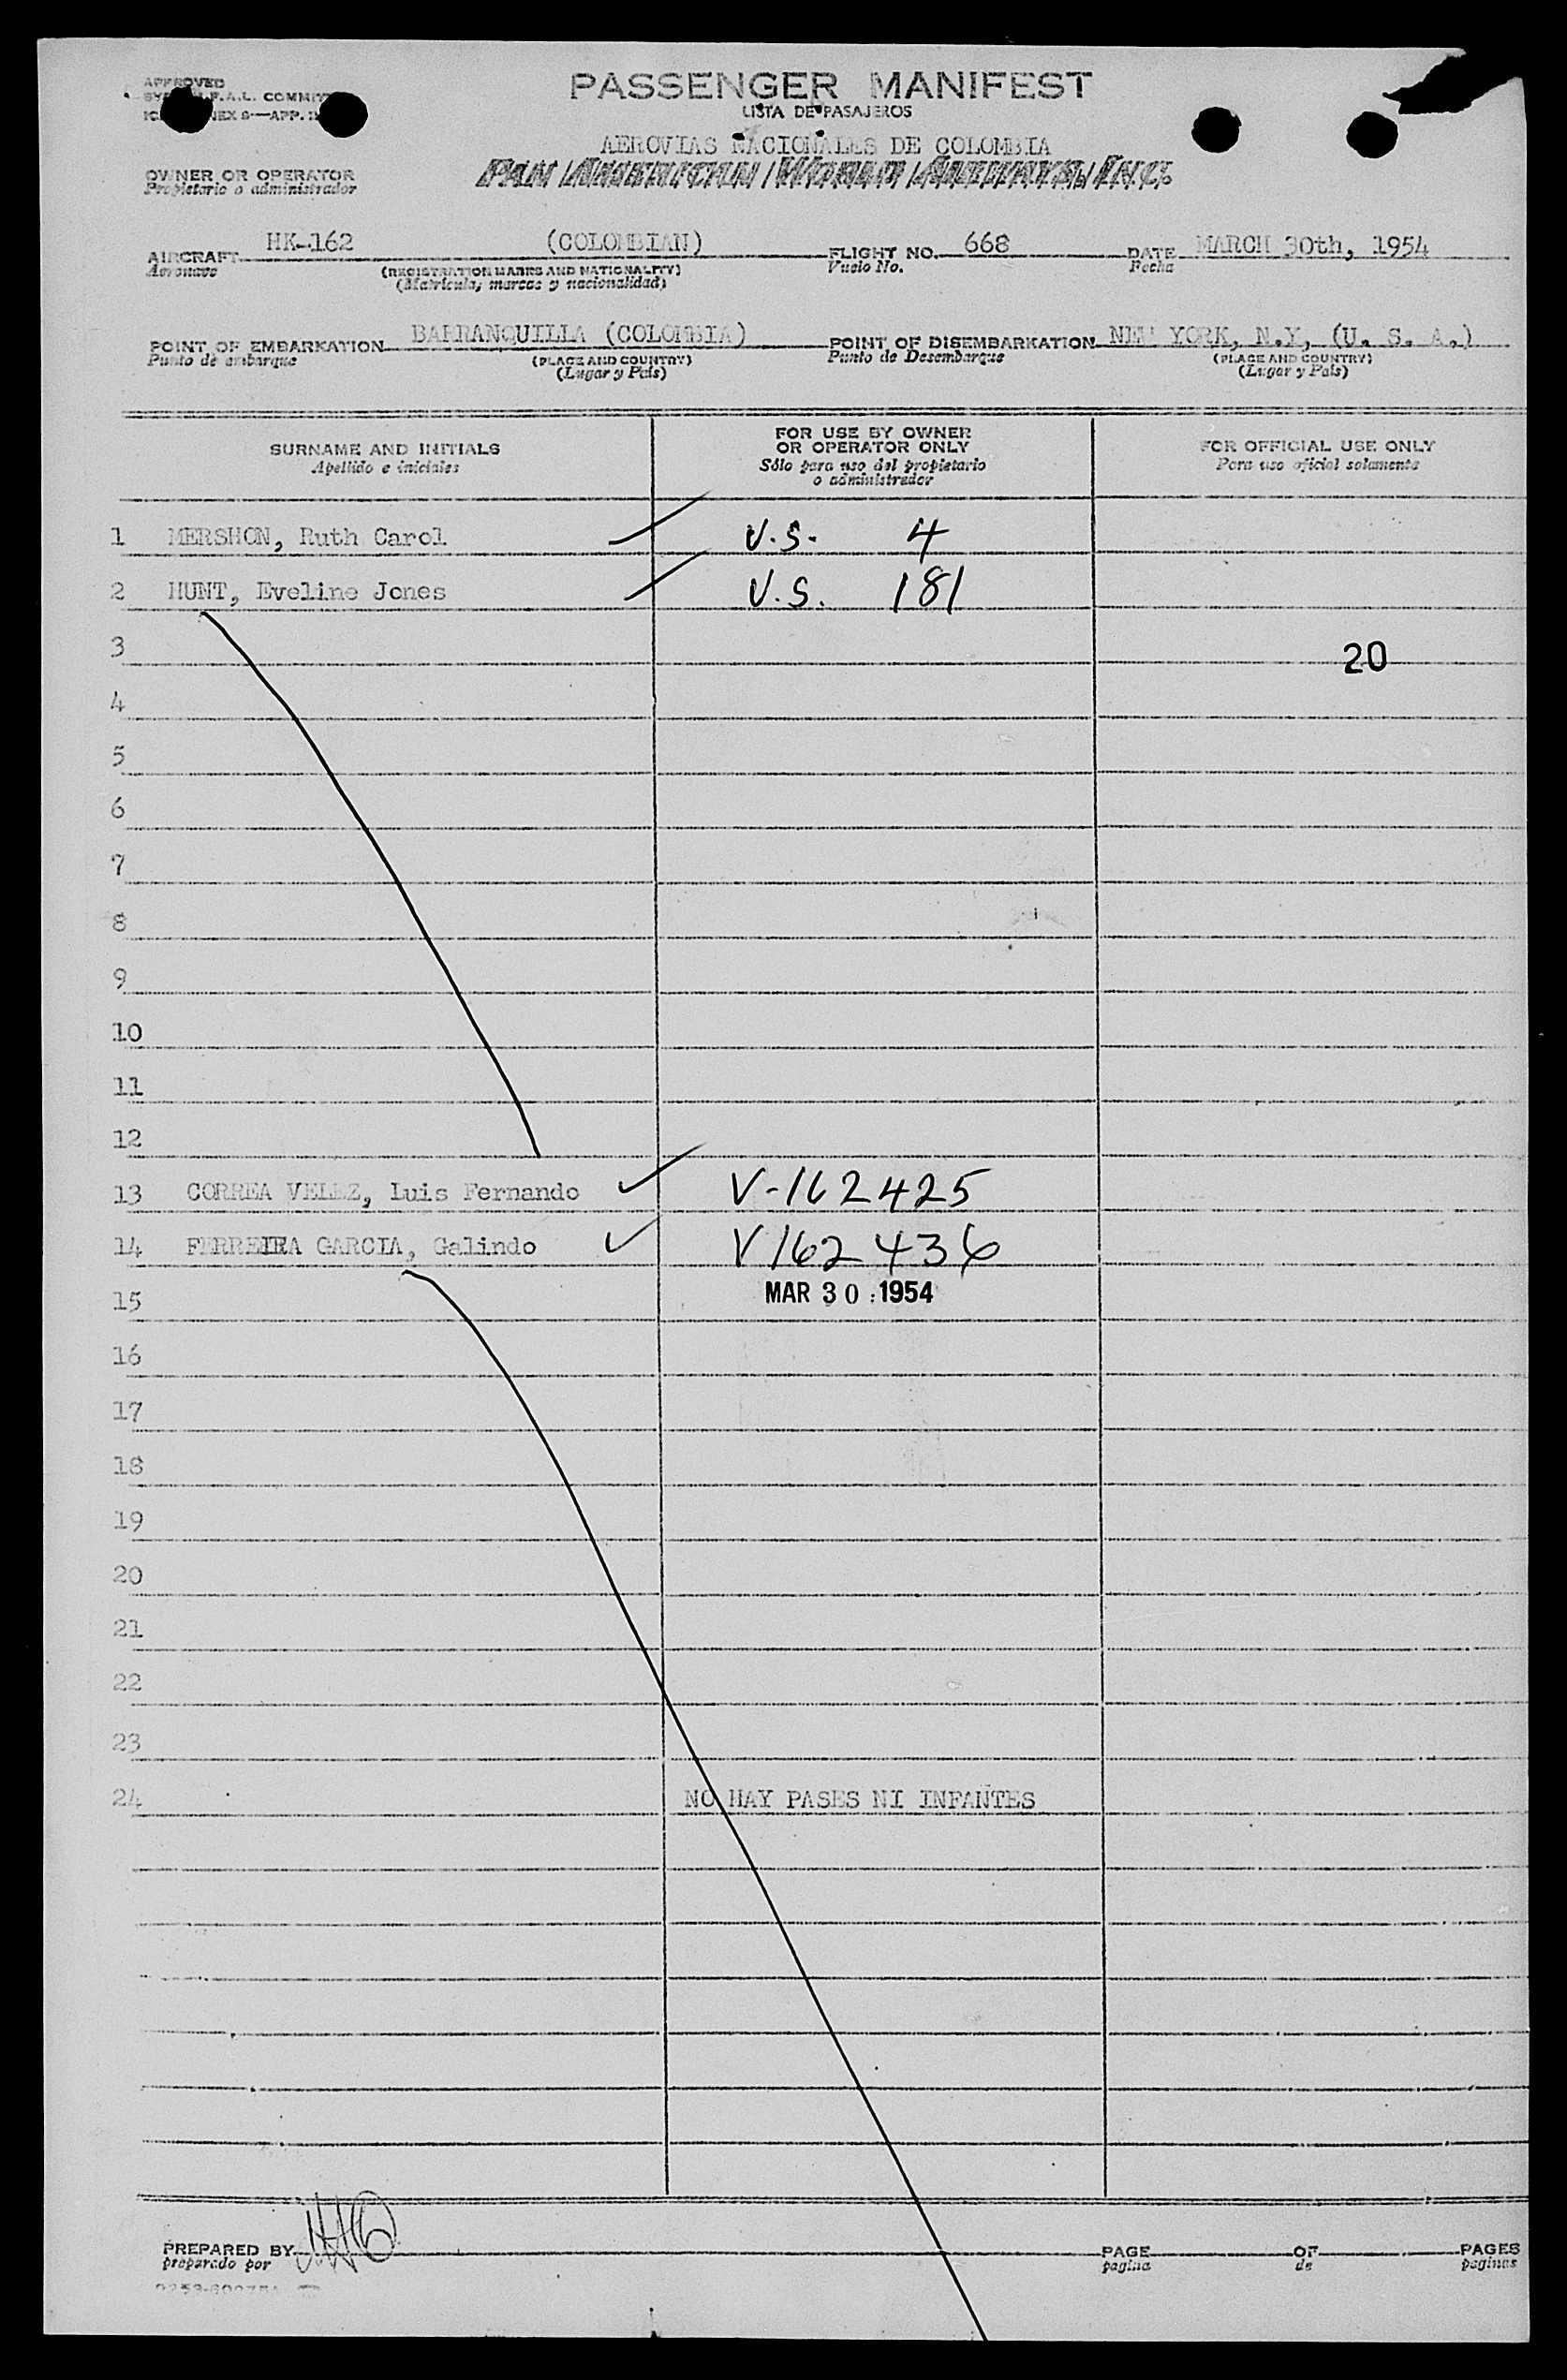 APPROVED
COMMIT
PASSENGER MANIFEST
LISTA DE PASAJEROS
AEROVIAS NACIONALES DE COLOMBIA
PAN AMERICAN WORLD AIRWAYS, INC.
OWNER OR OPERATOR
Propietario o administrador
AIRCRAFT HK-162 (COLOMBIAN) FLIGHT NO. 668 DATE MARCH 30th, 1954
Aeronave (REGISTRATION MARKS AND NATIONALITY) Vuelo No. Fecha
(Matricula, marcas y nacionalidad)
POINT OF EMBARKATION BARRANQUILLA (COLOMBIA) POINT OF DISEMBARKATION NEW YORK, N.Y, (U. S. A.)
Punto de embarque (PLACE AND COUNTRY) Punto de Desembarque (PLACE AND COUNTRY)
(Lugar y País) (Lugar y País)
SURNAME AND INITIALS FOR USE BY OWNER OR OPERATOR ONLY FOR OFFICIAL USE ONLY
Apellido e iniciales Sólo para uso del propietario o administrador Para uso oficial solamente
1 MERSHON, Ruth Carol V.S. 4
2 HUNT, Eveline Jones V.S. 181
3 20
4
5
6
7
8
9
10
11
12
13 CORREA VELEZ, Luis Fernando V-162425
14 FERREIRA GARCIA, Galindo V162436
15 MAR 30 1954
16
17
18
19
20
21
22
23
24 NO HAY PASES NI INFANTES
PREPARED BY PAGE OF PAGES
preparado por pagina de paginas